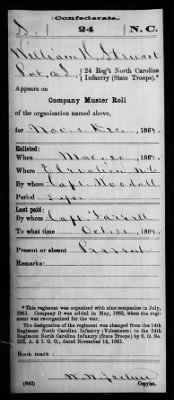 (Confederate.)
S 24 N.C.
William H. Stewart
Pvt, Co. I, 24 Reg't North Carolina
Infantry (State Troops).*
Appears on
Company Muster Roll
of the organization named above,
for Nov. & Dec., 1864.
Enlisted:
When Mar. 20, 186
Where N.C.
By whom Capt. Woodall
Period 3 yrs
Last paid:
By whom Capt.
To what time Oct. 31, 1864.
Present or absent Present
Remarks:
*This regiment was organized with nine companies in July,
1861. Company D was added in May, 1862, when the regiment
was re-organized for the war.
The designation of the regiment was changed from the 14th
Regiment North Carolina Infantry (Volunteers) to the 24th
Regiment North Carolina Infantry (State Troops) by S. O. No.
222, A. & I. G. O., dated November 14, 1861.
Book mark:
(642)
Copyist.